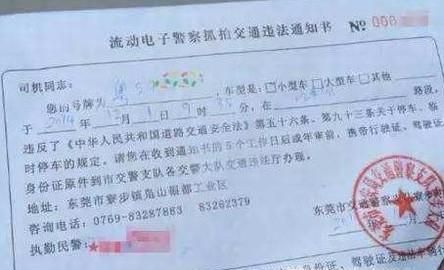 流动电子警察抓拍交通违法通知书 № 008
司机同志：
您的号牌为 粤S ，车型是：□小型车 □大型车 □其他
于 2014 年 12 月 1 日 9 时 35 分，在 路段，
违反了《中华人民共和国道路交通安全法》第五十六条、第九十三条关于停车、临
时停车的规定。请您在收到通知书的5个工作日后或年审前，携带行驶证、驾驶证
身份证原件到市交警支队各交警大队交通违法厅办理。
地址：东莞市寮步镇凫山银都工业区
咨询电话：0769-83287883 83262379
东莞市交通警察
执勤民警：
年 月
身份证、驾驶证及违法车辆行